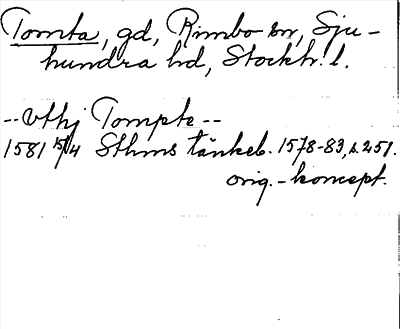 Tomta, gd, Rimbo sn, Sju-
hundra hd, Stockh. l.
-- vthj Tompte --
1581 15/4 Sthms tänkeb. 1578-83, s. 251.
orig.-koncept.